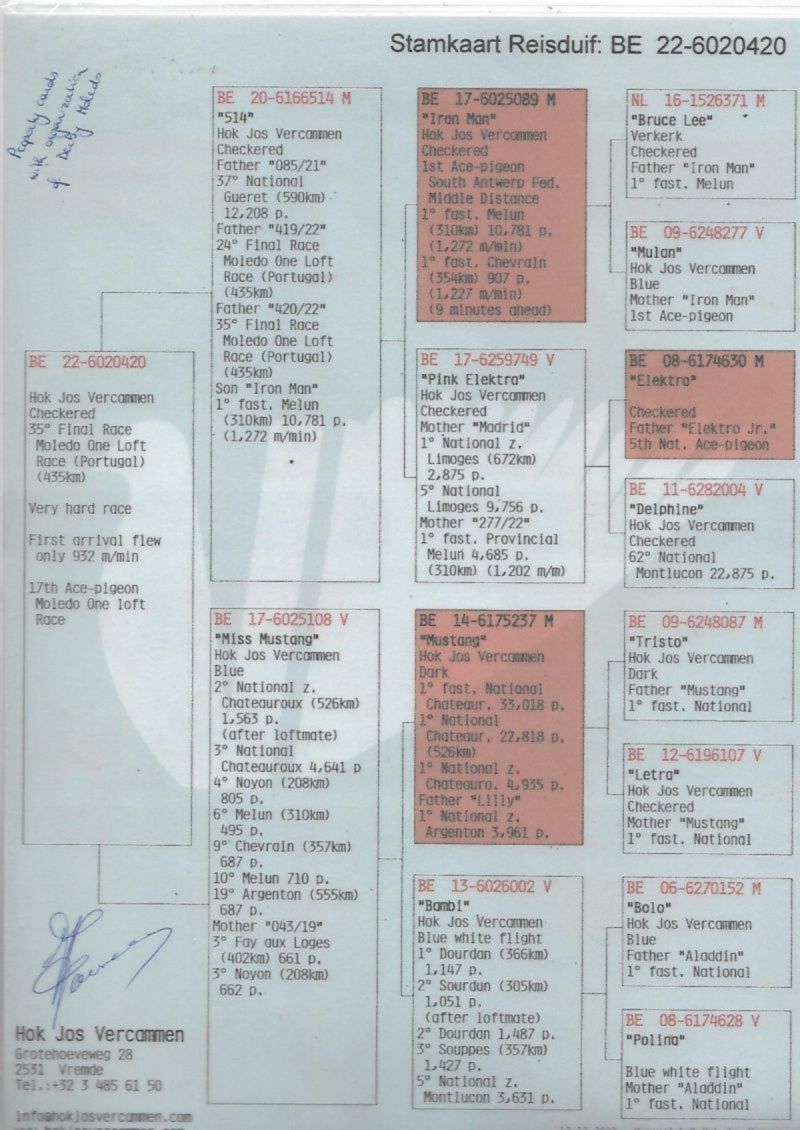 Stamkaart Reisduif: BE 22-6020420
Property cards
with organization
of Derby Moledo
BE 22-6020420
Hok Jos Vercammen
Checkered
35° Final Race
Moledo One Loft
Race (Portugal)
(435km)
Very hard race
First arrival flew
only 932 m/min
17th Ace-pigeon
Moledo One loft
Race
BE 20-6166514 M
"514"
Hok Jos Vercammen
Checkered
Father "085/21"
37° National
Gueret (590km)
12,208 p.
Father "419/22"
24° Final Race
Moledo One Loft
Race (Portugal)
(435km)
Father "420/22"
35° Final Race
Moledo One Loft
Race (Portugal)
(435km)
Son "Iron Man"
1° fast. Melun
(310km) 10,781 p.
(1,272 m/min)
BE 17-6025108 V
"Miss Mustang"
Hok Jos Vercammen
Blue
2° National z.
Chateauroux (526km)
1,563 p.
(after loftmate)
3° National
Chateauroux 4,641 p
4° Noyon (208km)
805 p.
6° Melun (310km)
495 p.
9° Chevrain (357km)
687 p.
10° Melun 710 p.
19° Argenton (555km)
687 p.
Mother "043/19"
3° Fay aux Loges
(402km) 661 p.
3° Noyon (208km)
662 p.
BE 17-6025089 M
"Iron Man"
Hok Jos Vercammen
Checkered
1st Ace-pigeon
South Antwerp Fed.
Middle Distance
1° fast. Melun
(310km) 10,781 p.
(1,272 m/min)
1° fast. Chevrain
(354km) 907 p.
(1,227 m/min)
(9 minutes ahead)
BE 17-6259749 V
"Pink Elektra"
Hok Jos Vercammen
Checkered
Mother "Madrid"
1° National z.
Limoges (672km)
2,875 p.
5° National
Limoges 9,756 p.
Mother "277/22"
1° fast. Provincial
Melun 4,685 p.
(310km) (1,202 m/m)
BE 14-6175237 M
"Mustang"
Hok Jos Vercammen
Dark
1° fast. National
Chateaur. 33,018 p.
1° National
Chateaur. 22,818 p.
(526km)
1° National z.
Chateauro. 4,935 p.
Father "Lilly"
1° National z.
Argenton 3,961 p.
BE 13-6026002 V
"Bambi"
Hok Jos Vercammen
Blue white flight
1° Dourdan (366km)
1,147 p.
2° Sourdun (305km)
1,051 p.
(after loftmate)
2° Dourdan 1,487 p.
3° Souppes (357km)
1,427 p.
5° National z.
Montlucon 3,631 p.
NL 16-1526371 M
"Bruce Lee"
Verkerk
Checkered
Father "Iron Man"
1° fast. Melun
BE 09-6248277 V
"Mulan"
Hok Jos Vercammen
Blue
Mother "Iron Man"
1st Ace-pigeon
BE 08-6174630 M
"Elektro"
Checkered
Father "Elektro Jr."
5th Nat. Ace-pigeon
BE 11-6282004 V
"Delphine"
Hok Jos Vercammen
Checkered
62° National
Montlucon 22,875 p.
BE 09-6248087 M
"Tristo"
Hok Jos Vercammen
Dark
Father "Mustang"
1° fast. National
BE 12-6196107 V
"Letra"
Hok Jos Vercammen
Checkered
Mother "Mustang"
1° fast. National
BE 06-6270152 M
"Bolo"
Hok Jos Vercammen
Blue
Father "Aladdin"
1° fast. National
BE 08-6174628 V
"Polina"
Blue white flight
Mother "Aladdin"
1° fast. National
Hok Jos Vercammen
Grotehoeveweg 28
2531 Vremde
Tel.:+32 3 485 61 50
info@hokjosvercammen.com